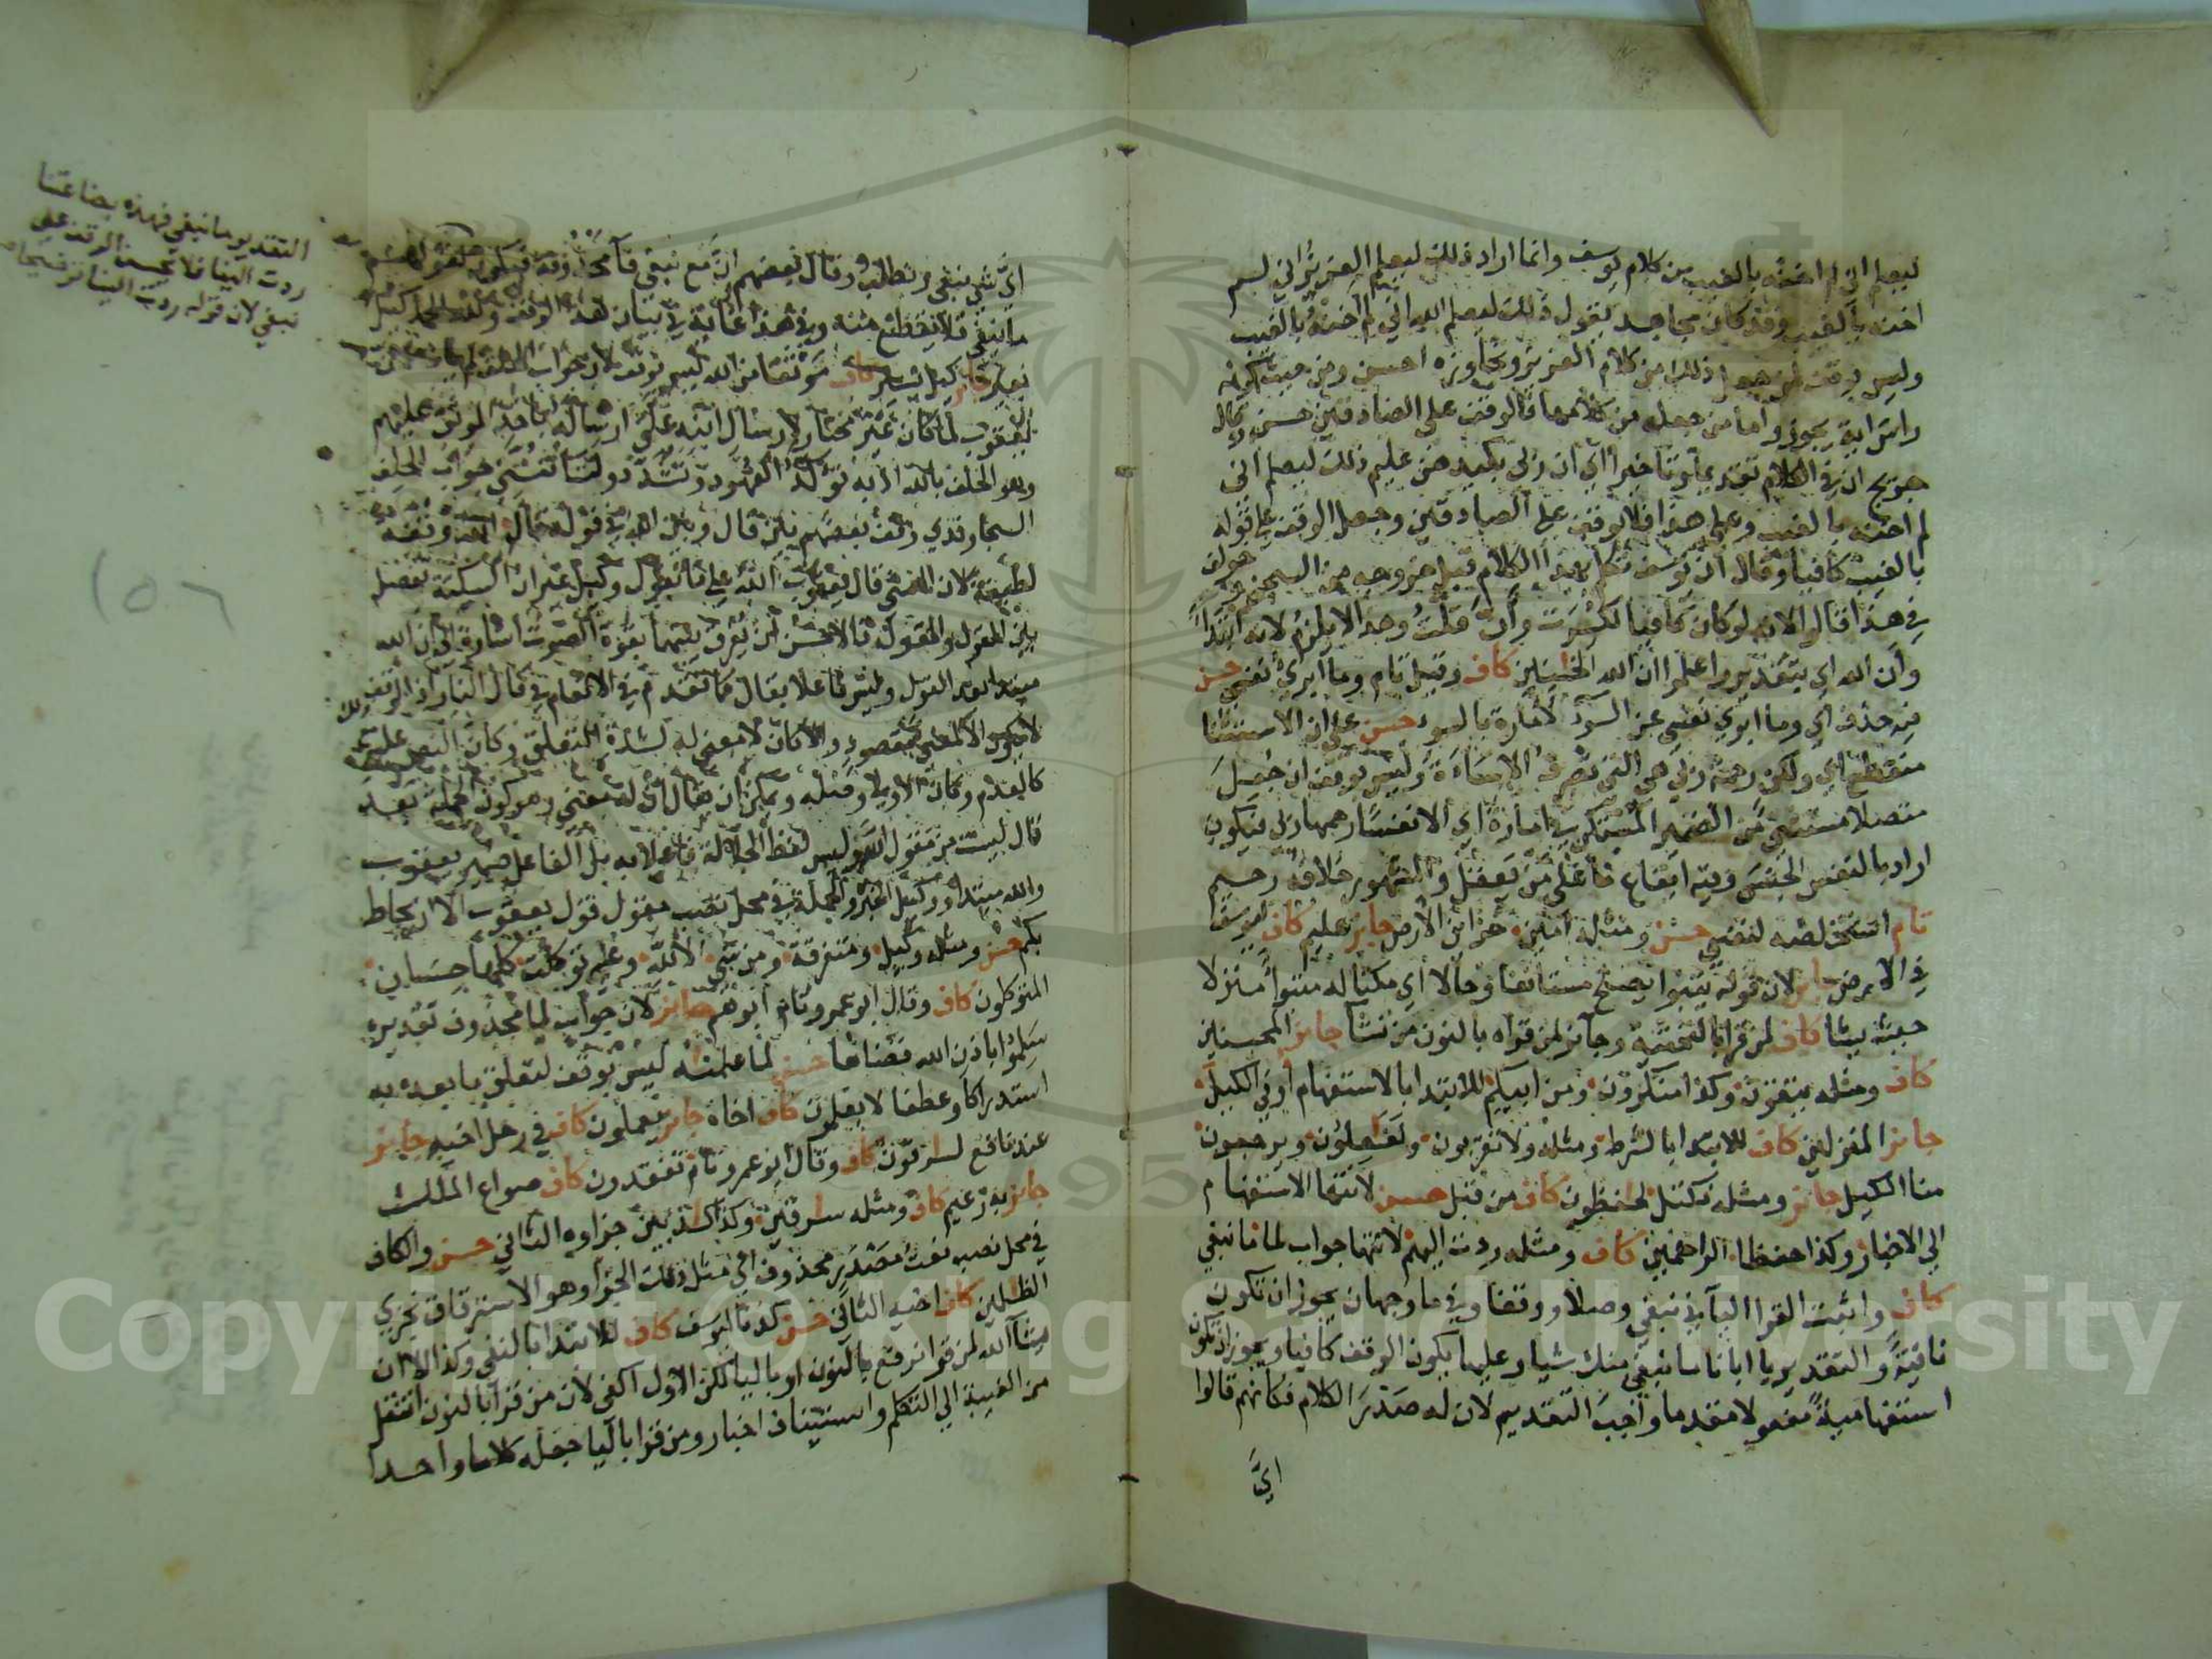 ليعلم اني لم اخنه بالغيب من كلام يوسف وانما اراد ذلك ليعلم العزيز اني لم
اخنه بالغيب وقد كان مجاهد يقول ذلك ليعلم الله اني لم اخنه بالغيب
وليس بوقف لمن جعل ذلك من كلام العزيز وتجاوزه احسن ومن حيث كونه
راس اية يجوز واما من جعله من كلامها فالوقف على الصادقين حسن وقال
جريج ان في الكلام تقديما وتاخيرا اي ان ربي بكيدهن عليم ذلك ليعلم اني
لم اخنه بالغيب وعلى هذا فلا يوقف على الصادقين وجعل الوقف على قوله
بالغيب كافيا وقال ان يوسف تكلم بهذا الكلام قبل خروجه من السجن
في هذا فقال الان لو كان كافيا لكسرت وان قلت وهذا لا يلزم لانه ابتدا
وان الله اي بتقدير واعلموا ان الله الخاينين كاف وقيل تام وما ابري نفسي حسن
فيه حذف اي وما ابري نفسي عن السوء لامارة بالسوء حسن على ان الاستثنا
منقطع اي ولكن رحمة ربي هي التي تصرف الاساءة وليس بوقف ان جعل
متصلا مستثنى من الضمير المستكن في امارة اي الا نفسا رحمها ربي فيكون
اراد بالنفس الجنس وفيه ايقاع ما على من يعقل والمشهور خلافه رحيم
تام استخلصه لنفسي حسن ومثله امين خزاين الارض جايز عليم كاف ليوسف
في الارض جايز لان قوله يتبوا يصلح مستانفا وحالا اي مكنا له متبوا منزلا
حيث يشا كاف لمن قرا بالتحتية وجايز لمن قراه بالنون من نشا جايز المحسنين
كاف ومثله يتقون وكذا منكرون ومن ابيكم للابتدا بالاستفهام اوفي الكيل
جايز المنزلين كاف للابتدا بالشرط ومثله ولا تقربون ولفاعلون ويرجعون
منا الكيل جايز ومثله نكتل لحافظون كاف من قبل حسن لانتها الاستفهام
الى الاخبار وكذا حفظا الراحمين كاف ومثله ردت اليهم لانتها جواب لما ما نبغي
كاف واثبت القرا اليا في نبغي وصلا ووقفا وفي ما وجهان يجوز ان تكون
نافية والتقدير يا ابانا ما نبغي منك شيا وعليها يكون الوقف كافيا ويجوز ان تكون
استفهامية مفعولا مقدما واجب التقديم لان له صدر الكلام فكانهم قالوا
اي
اي شي نبغي ونطلب وقال بعضهم ان مع نبغي فا محذوفة فيكون
ما نبغي فلا يقطع منه وفي هذا غاية في بيان هذا الوقف ولله الحمد كثيرا
نعير جايز كيل يسير كاف موثقا من الله ليس بوقف لان جواب الحلف
يعقوب لما كان غير مختار لارسال ابنه على ارساله باخذ الموثق عليهم
وهو الحلف بالله اذ به تؤكد العهود وتشدد ولتاتنني جواب الحلف
السجاوندي وقف بعضهم بين قال وبين الله في قوله قال الله وقفة
لطيفة لان المعنى قال يعقوب الله على ما نقول وكيل غير ان السكتة تفصل
بين القول والمقول فالاحسن ان يفرق بينهما بقوة الصوت اشارة الى ان الله
مبتدا بعد القول وليس فاعلا بقال كما تقدم في الانعام في قال النار
لا يكون الا لمعنى مقصود والا كان لا معنى له لشدة التعلق وكان النص عليه
كالعدم وكان الاولى وصله ويمكن ان يقال ان له معنى وهو كون الجملة بعد
قال ليست من مقول الله وليس لفظ الجلالة فاعلا به بل الفاعل ضمير يعقوب
والله مبتدا ووكيل الخبر والجملة في محل نصب مقول قول يعقوب الا ان يحاط
بكم حسن ومثله وكيل ومتفرقة ومن شي الا لله وعليه توكلت كلها حسان
المتوكلون كاف وقال ابو عمرو تام ابوهم جايز لان جواب لما محذوف تقديره
سلموا باذن الله قضاها حسن لما علمناه ليس بوقف لتعلق ما بعده به
استدراكا وعطفا لا يعلمون كاف اخاه جايز يعملون كاف في رحل اخيه جايز
عند نافع لسارقون كاف وقال ابو عمرو تام تفقدون كاف صواع الملك
جايز به زعيم كاف ومثله سارقين وكذا كاذبين جزاوه الثاني حسن والكاف
في محل نصب نعت مصدر محذوف اي مثل ذلك الجزا وهو الاسترقاق نجزي
الظالمين كاف اخيه الثاني حسن كدنا ليوسف كاف للابتدا بالنفي وكذا الا ان
يشا الله لمن قرا نرفع بالنون او باليا لكن الاول اكفى لان من قرا بالنون انتقل
من الغيبة الى التكلم واستيناف اخبار ومن قرا باليا جعله كلاما واحدا
التقدير ما نبغي فهذه بضاعتنا
ردت الينا فلا يحسن الوقف على
نبغي لان قوله ردت الينا
١٥٦
Copyright © King Saud University
1957